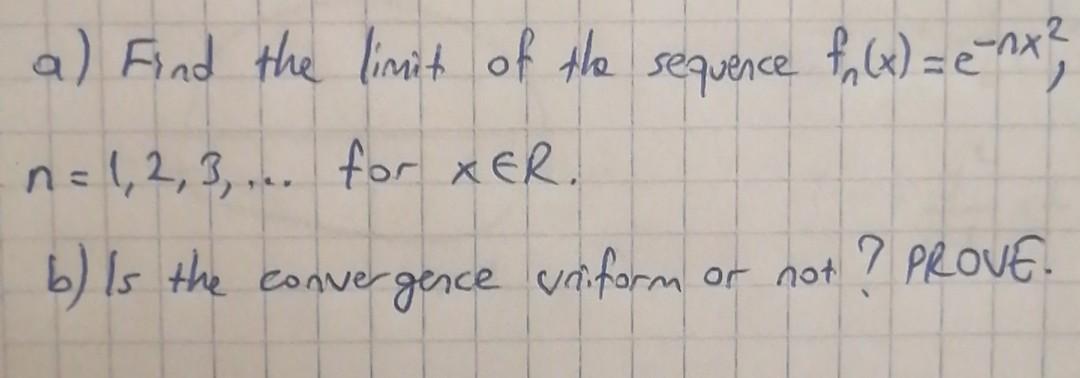 a) Find the limit of the sequence fₙ(x) = e^{-nx²},
n = 1, 2, 3, ... for x ∈ R.
b) Is the convergence uniform or not? PROVE.